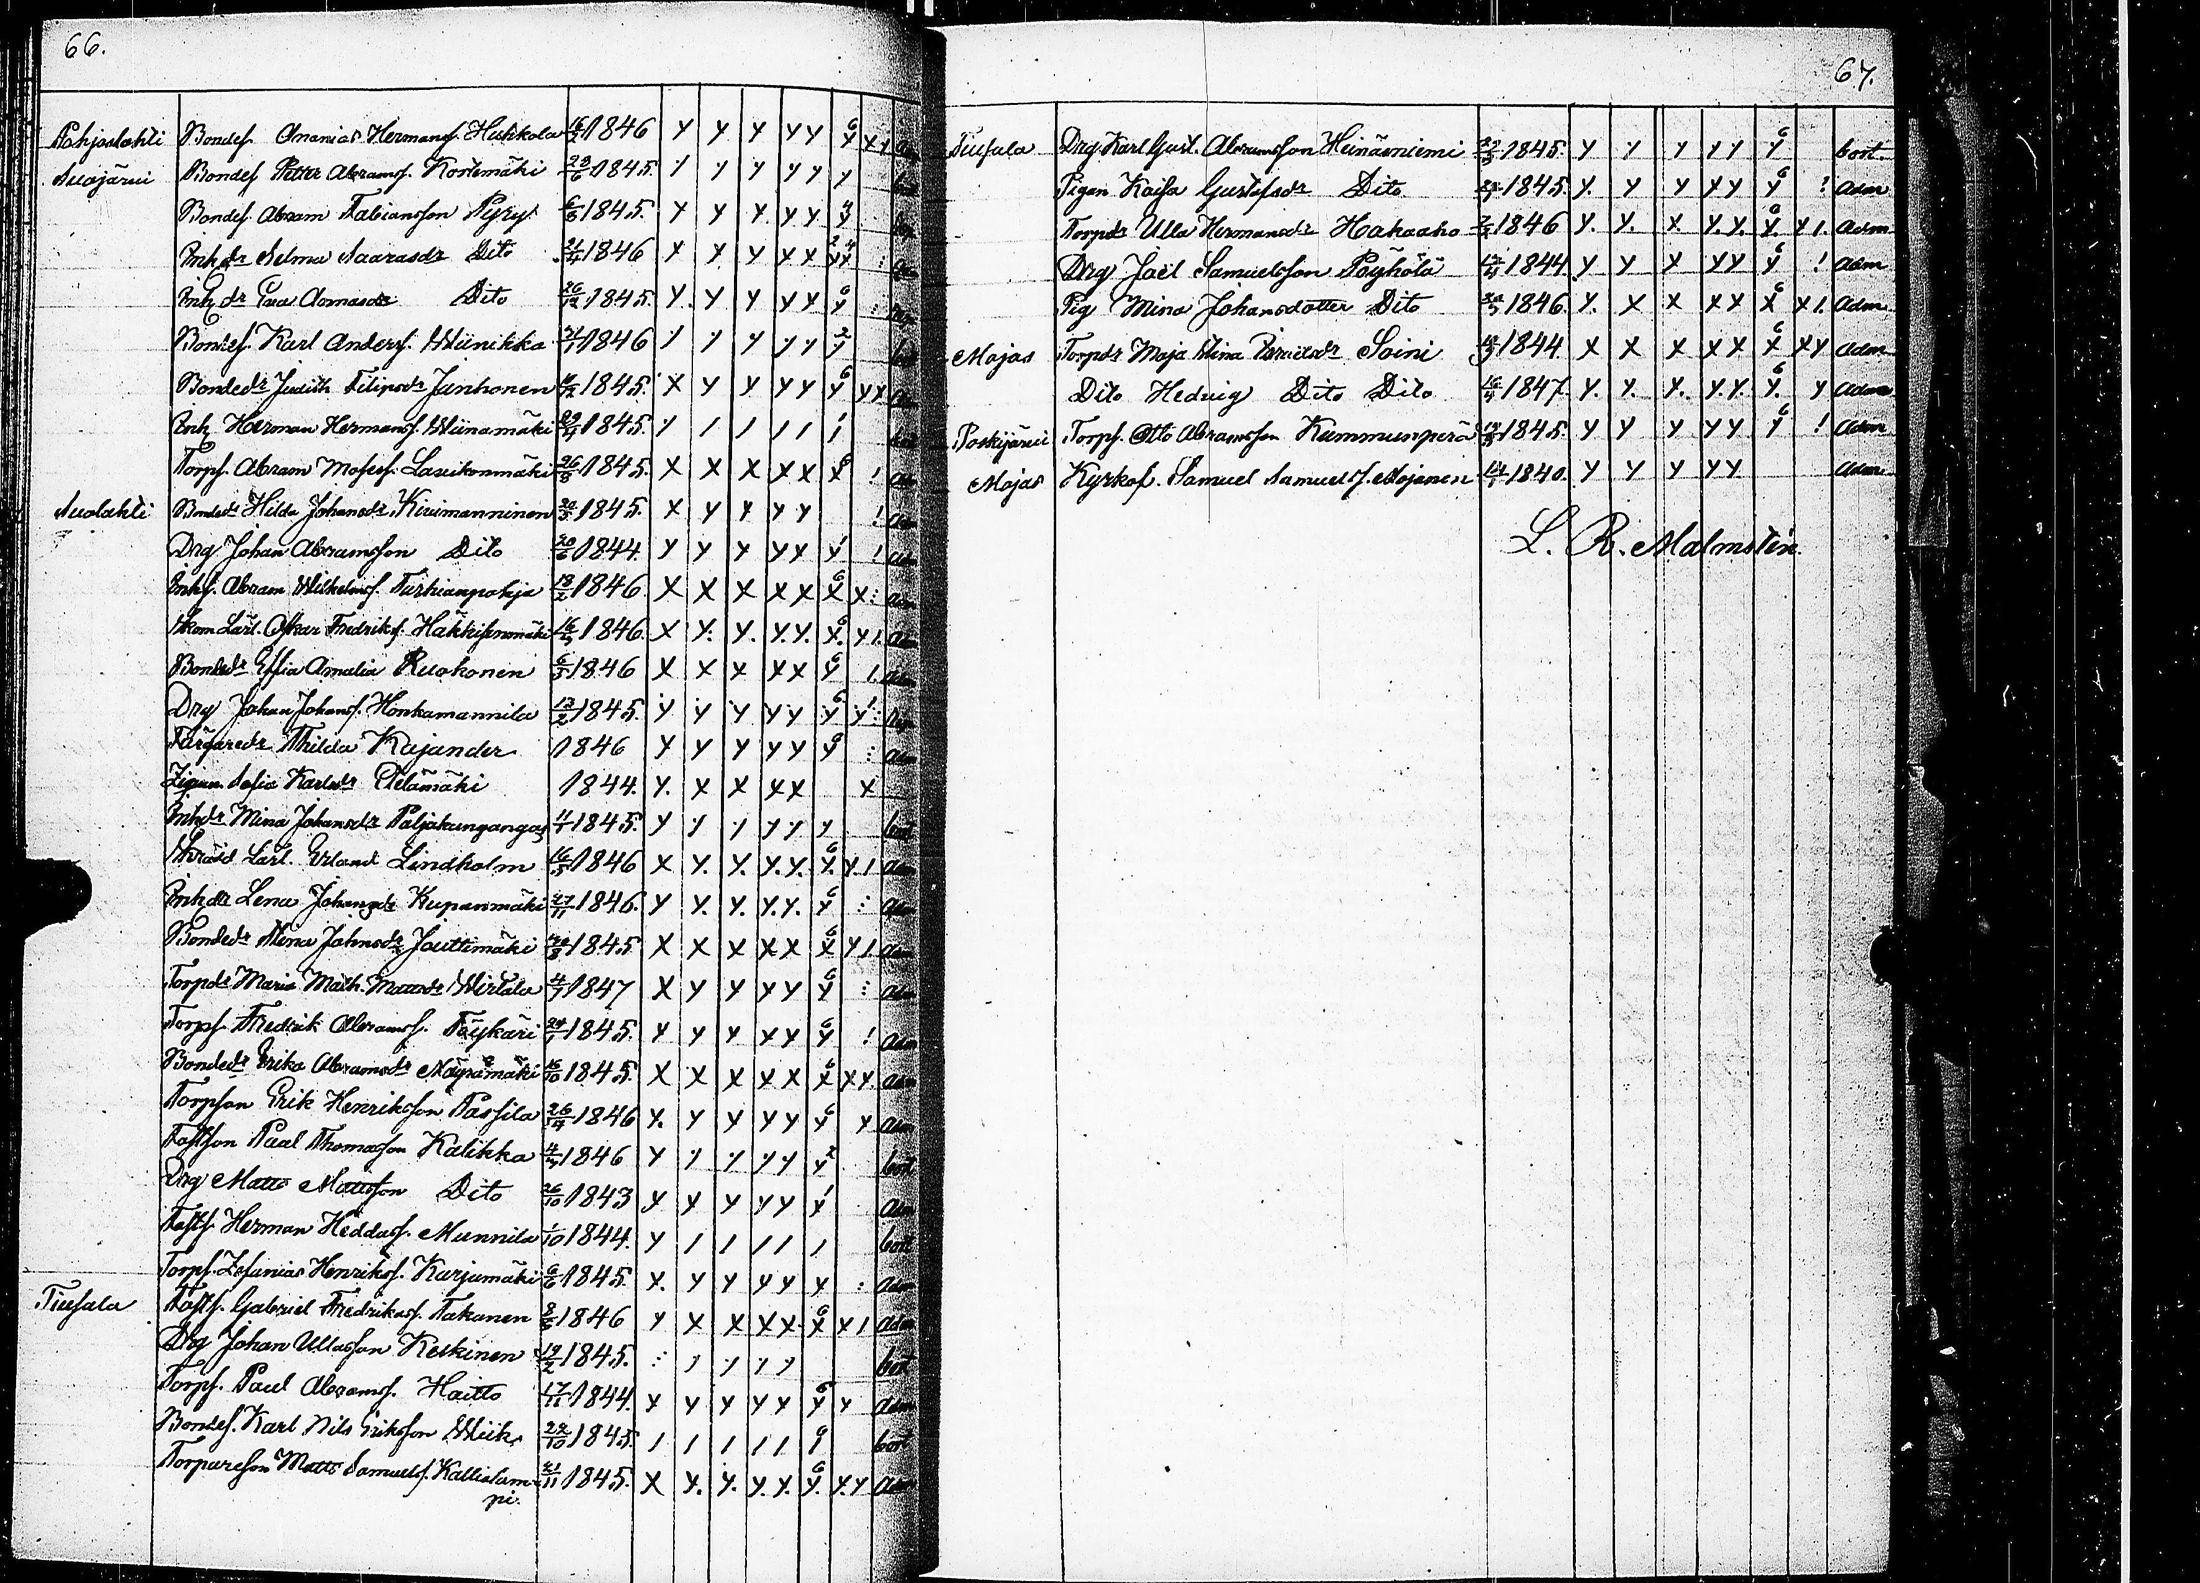 66.
Pohjoslahti Bondes. Ananias Hermansf. Huhkola 1846 Y Y Y Y Y Y 6
Suojärvi Bondes Petter Abramsf. Kortemäki 1845. Y Y Y Y Y bort
Bondes. Abram Fabiansson Pyry 6/6 1845. Y Y Y. Y Y. Y bort
Inhdr Selma Saarasdr Dito 1846 X Y. Y X X
Inhdr Eva Dito 1845. Y. Y Y Y Y Y 6 :
Bondes. Karl Andersf. Wiinikka 1846 Y Y Y Y Y Y 2 bort
Bondedr Judith Filipsdr Janhonen 1845. X Y Y Y Y Y 6 Y X Adm
Inh. Herman Hermansf. Wiinamäki 1845. bort
Torpf. Abram Mosesf. Lavikonmäki 26/5 1845. X X X X X X 6 ! Adm
Suolahti Bondedr Hilda Johansdr Kivimanninen 1845. X Y Y Y Y ! Adm
Drg Johan Abramsson Dito 20/6 1844. Y Y Y Y X Y ! Adm
Inhf. Abram Wilhelmsf. Turhianpohja 13/2 1846. X X X X X X 6 X : Adm
Skom Lärl. Oskar Fredriksf. Häkkisenmäki 1846. X Y. Y. Y. Y. Y. 6 Y !. Adm
Bondedr Effia Amalia Ruokonen 6/3 1846 X X X X X Y 6 !. Adm
Drg Johan Johansf. Honkamannila 13/2 1845. Y Y Y Y Y Y 6
Färgaredr Thilda Kajander 1846 Y Y Y Y Y Y 6 : Adm
Zigan. Sofia Karlsdr Pelämäki 1844. Y. X X X X X
Inhdr Mina Johansdr Paljakangangas 1845. Y Y Y Y Y Y bort
Skräd Lärl. Erland Lindholm 16/5 1846 X Y. Y. Y. Y. Y. 6 Y ! Adm
Inhdr Lena Johansdr Kupanmäki 27/11 1846. Y Y. Y. Y. Y. Y 6 : Adm
Bondedr Mina Johnsdr Jouttimäki 1845 X X X X X X 6 Y !. Adm
Torpdr Maria Math. Mattsdr Wirtala 1847 X Y Y Y Y Y 6 : Adm
Torpf. Fredrik Abramsf. Töykäri 1845. Y Y Y X Y Y 6 ! Adm
Bondedr Erika Abramsdr Möyrämäki 1845. X X X X X X 6 X Y. Adm
Torpson Erik Henriksson Passila 1846 Y. Y Y Y Y Y 6 Y Adm
Paul Thomasson Kalikka 1846 Y Y Y Y Y Y 2 bort
Drg Matts Mattsson Dito 26/10 1843 Y Y Y Y Y Y Adm
Herman Heddasf. Munnila 1/10 1844. Y bort
Torpf. Zefanias Henriksf. Karjumäki 6/6 1845. X. Y Y Y Y Y : Adm
Tiusala Gabriel Fredriksf. Takanen 1846 Y X X X X. X 6 X ! Adm
Drg Johan Ullasson Keskinen 19/2 1845. : Y Y Y Y bort
Torpf. Paul Abramsf. Haitto 17/11 1844. Y Y Y Y Y Y 6 Y Adm
Bondes. Karl Nils Eriksson Wiik 1845. bort
Torparesson Matts Samuelsf. Kalliolam- 21/11 1845. X Y. Y. Y. Y. Y. 6 Y. Y Adm
pi.
67.
Tiusala Drg Karl Gust. Abramsson Heinäsniemi 1845. Y Y Y Y Y Y 6 bort.
Pigan Kaisa Gustafsdr Dito 1845. Y. Y Y X Y Y 6 ! Adm
Torpdr Ulla Hermansdr Hakaaho 1846 Y. Y. X Y. Y. Y. 6 Y !. Adm
Drg Joël Samuelsson Pöyhölä 1844 Y Y X Y Y Y 6 ! Adm
Pig Mina Johansdotter Dito 1846. Y. X X X X X 6 X !. Adm.
Mojas Torpdr Maja Stina Soini 1844. X X X X X X 6 X Y Adm
Dito Hedvig Dito Dito 1847. Y. Y. X. Y. Y. Y. 6 Y Adm
Poskijärvi Torpf. Otto Abramsson Kummunperä 1845. Y Y Y Y Y Y 6 ! Adm
Mojas Kyrkof. Samuel Samuelsf. Mojanen 1840. Y Y Y Y Y. Adm
L. R. Malmstén.